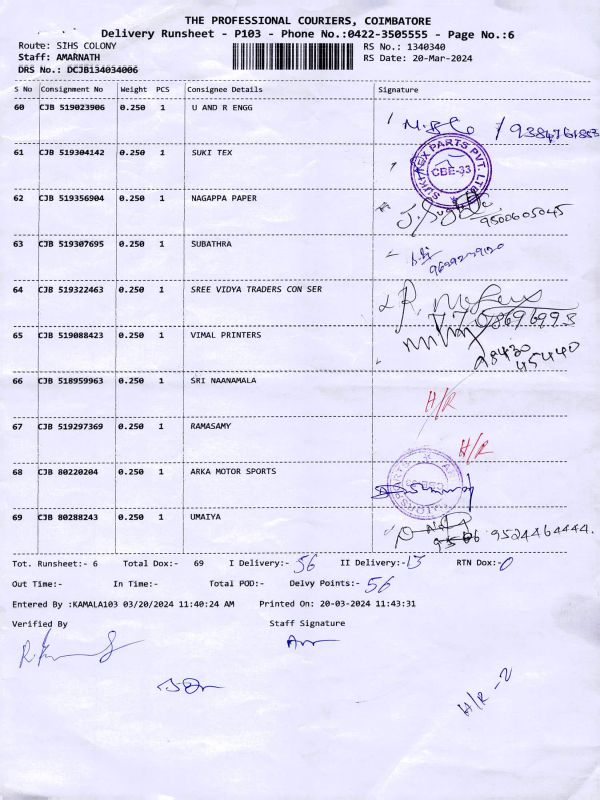 THE PROFESSIONAL COURIERS, COIMBATORE
Delivery Runsheet - P103 - Phone No.:0422-3505555 - Page No.:6
Route: SIHS COLONY RS No.: 1340340
Staff: AMARNATH RS Date: 20-Mar-2024
DRS No.: DCJB134034006
S No Consignment No Weight PCS Consignee Details Signature
60 CJB 519023906 0.250 1 U AND R ENGG
61 CJB 519304142 0.250 1 SUKI TEX
SUKHTEX PARTS PVT. LTD
CBE-33
62 CJB 519356904 0.250 1 NAGAPPA PAPER
9500605045
63 CJB 519307695 0.250 1 SUBATHRA
64 CJB 519322463 0.250 1 SREE VIDYA TRADERS CON SER
65 CJB 519088423 0.250 1 VIMAL PRINTERS
98430
45440
66 CJB 518959963 0.250 1 SRI NAANAMALA
H/R
67 CJB 519297369 0.250 1 RAMASAMY
H/R
68 CJB 80220204 0.250 1 ARKA MOTOR SPORTS
69 CJB 80288243 0.250 1 UMAIYA
9524464444.
Tot. Runsheet:- 6 Total Dox:- 69 I Delivery:- 56 II Delivery:- 13 RTN Dox:- 0
Out Time:- In Time:- Total POD:- Delvy Points:- 56
Entered By :KAMALA103 03/20/2024 11:40:24 AM Printed On: 20-03-2024 11:43:31
Verified By Staff Signature
H/R - 2